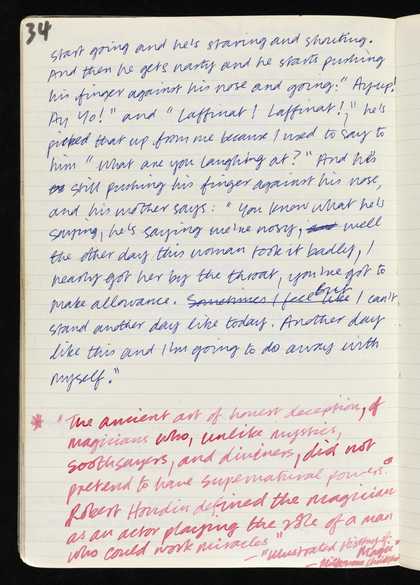 34
start going and he's staring and shouting.
And then he gets nasty and he starts pushing
his finger against his nose and going: "Ay up!
Ay Yo!" and "Laffinat! Laffinat!," he's
picked that up from me because I used to say to
him "what are you laughing at?" And he's
still pushing his finger against his nose,
and his mother says: "You know what he's
saying, he's saying we're nosy, well
the other day this woman took it badly, I
nearly got her by the throat, you've got to
make allowance. Sometimes I feel like but I can't
stand another day like today. Another day
like this and I'm going to do away with
myself."
* "The ancient art of honest deception, of
magicians who, unlike mystics,
soothsayers, and diviners, did not
pretend to have supernatural powers."
Robert Houdin defined the magician
as an actor playing the rôle of a man
who could work miracles" – "Illustrated History of
Magic"
– Milbourne Christopher